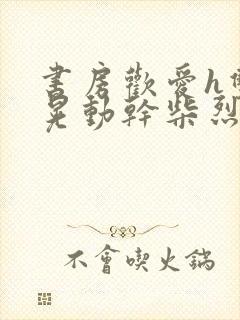 書房歡愛h
晃動幹柴烈
不會喫火鍋